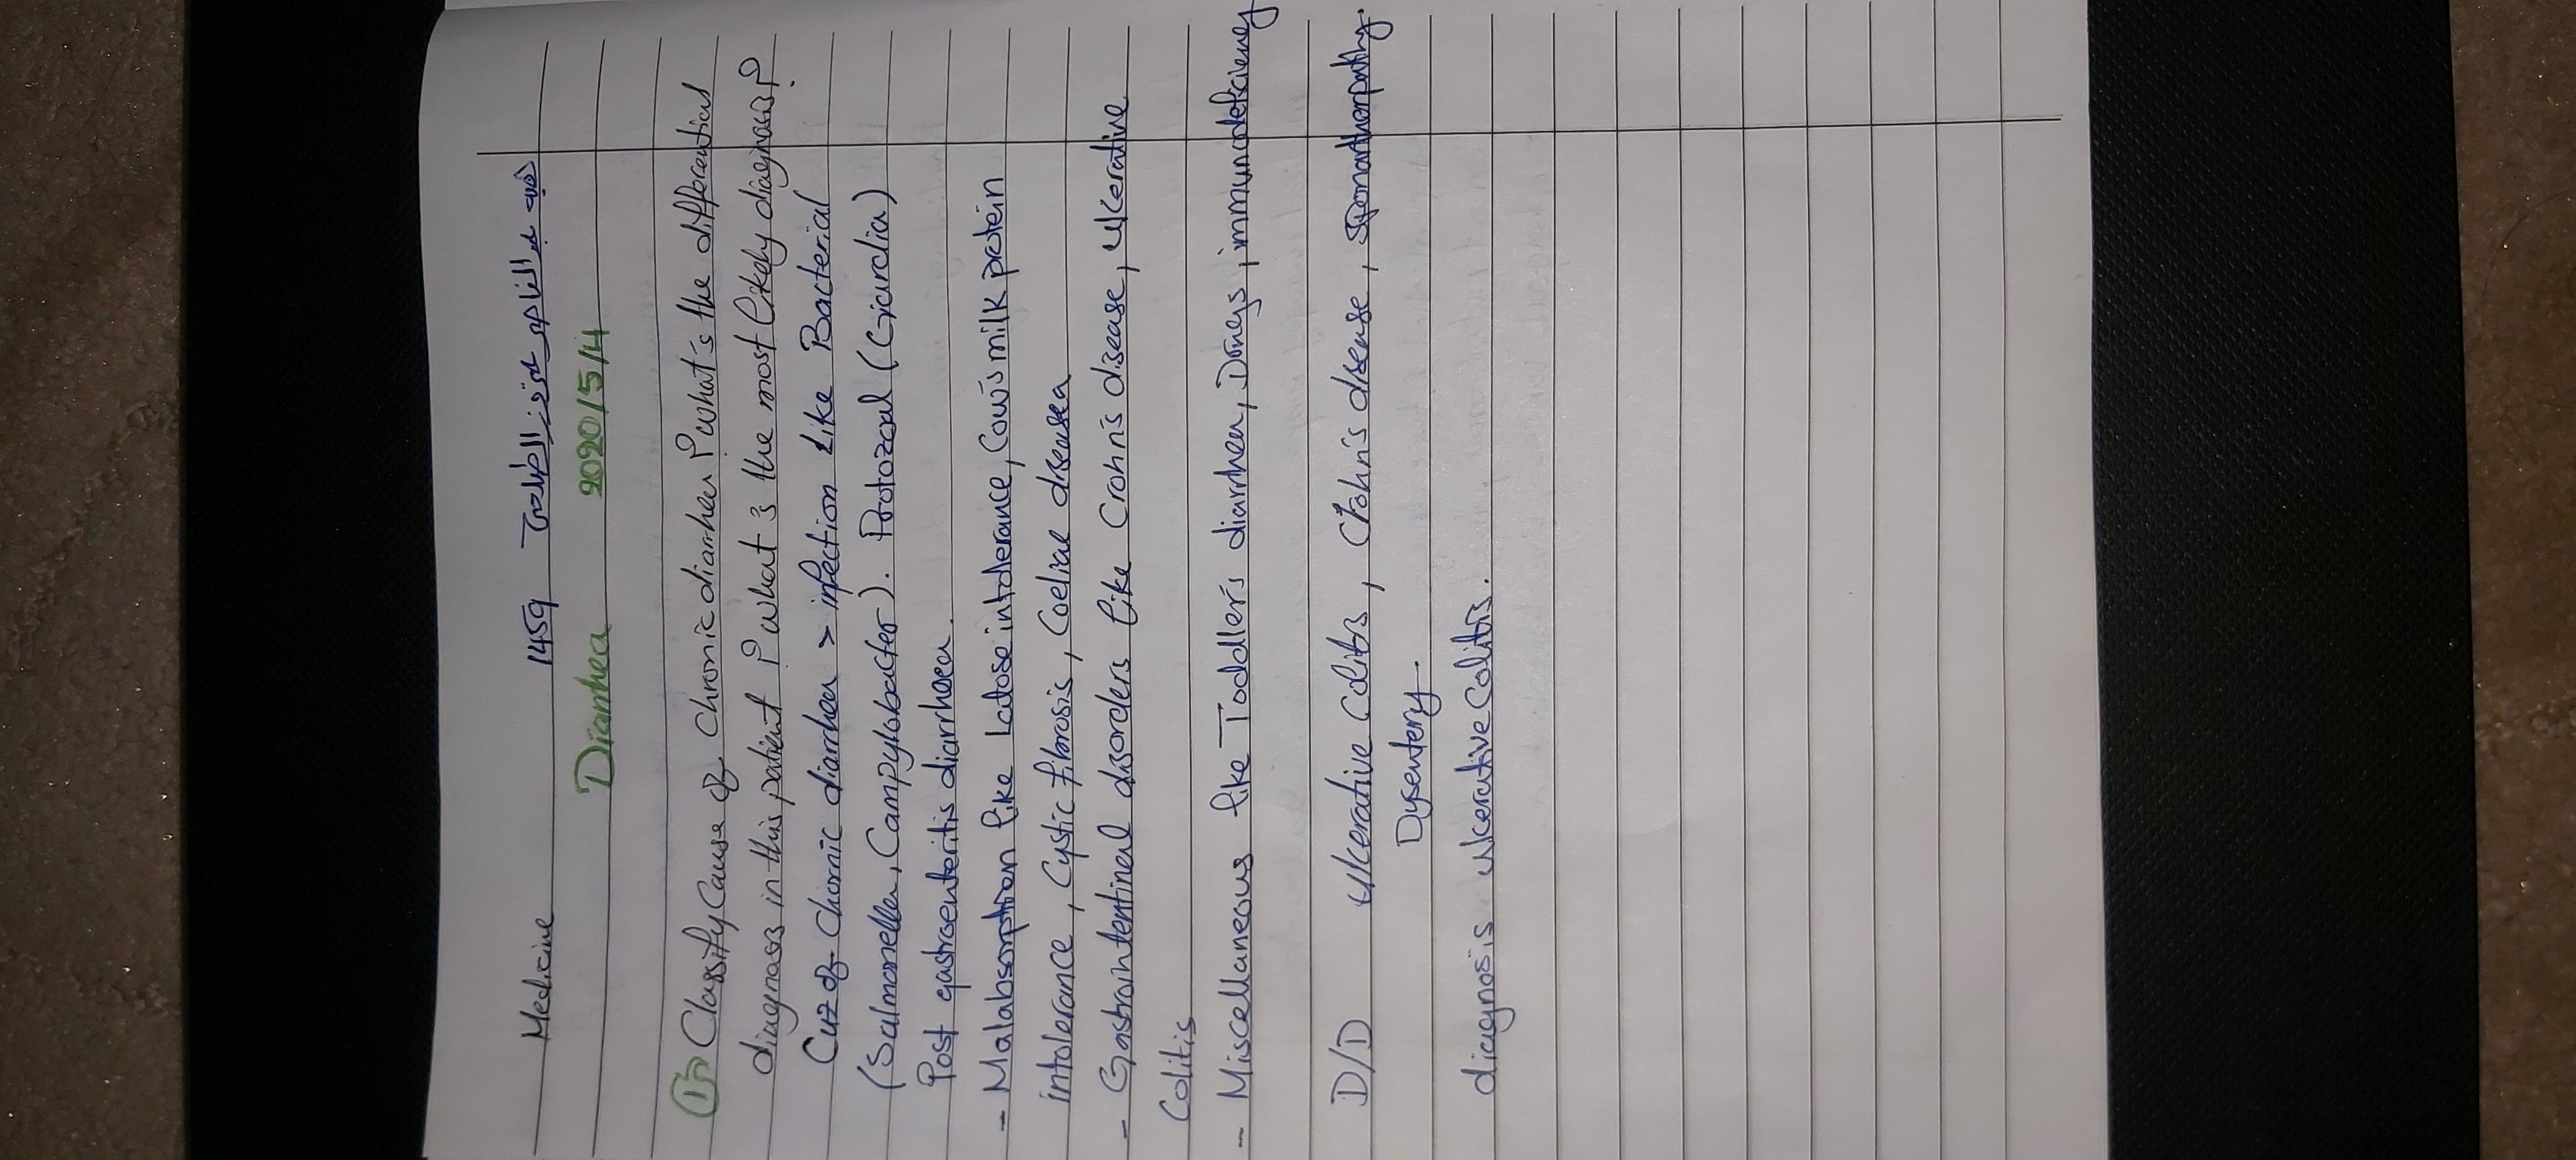 Medicine 1459
Diarrhea 2020/5/4
1) Classify Cause of Chronic diarrhea ? what's the differential
diagnosis in this patient ? what's the most likely diagnosis ?
Cuz of Chornic diarrhea > infection Like Bacterial
(Salmonella, Campylobacter). Protozoal (Giardia)
Post gastroenteritis diarrhoea.
- Malabsorption like Lactose intolerance, Cow's milk protein
intolerance, Cystic fibrosis, Coeliac disease
- Gastrointentinal disorders like Crohn's disease, ulcerative
Colitis
- Miscellaneous like Toddler's diarrhea, Drugs, immunodeficiency
D/D ulcerative Colitis, Crohn's disease,
Dysentery
diagnosis ulcerative Colitis.